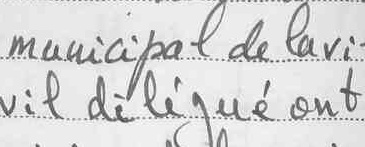 municipal de Lavi-
vil délégué ont